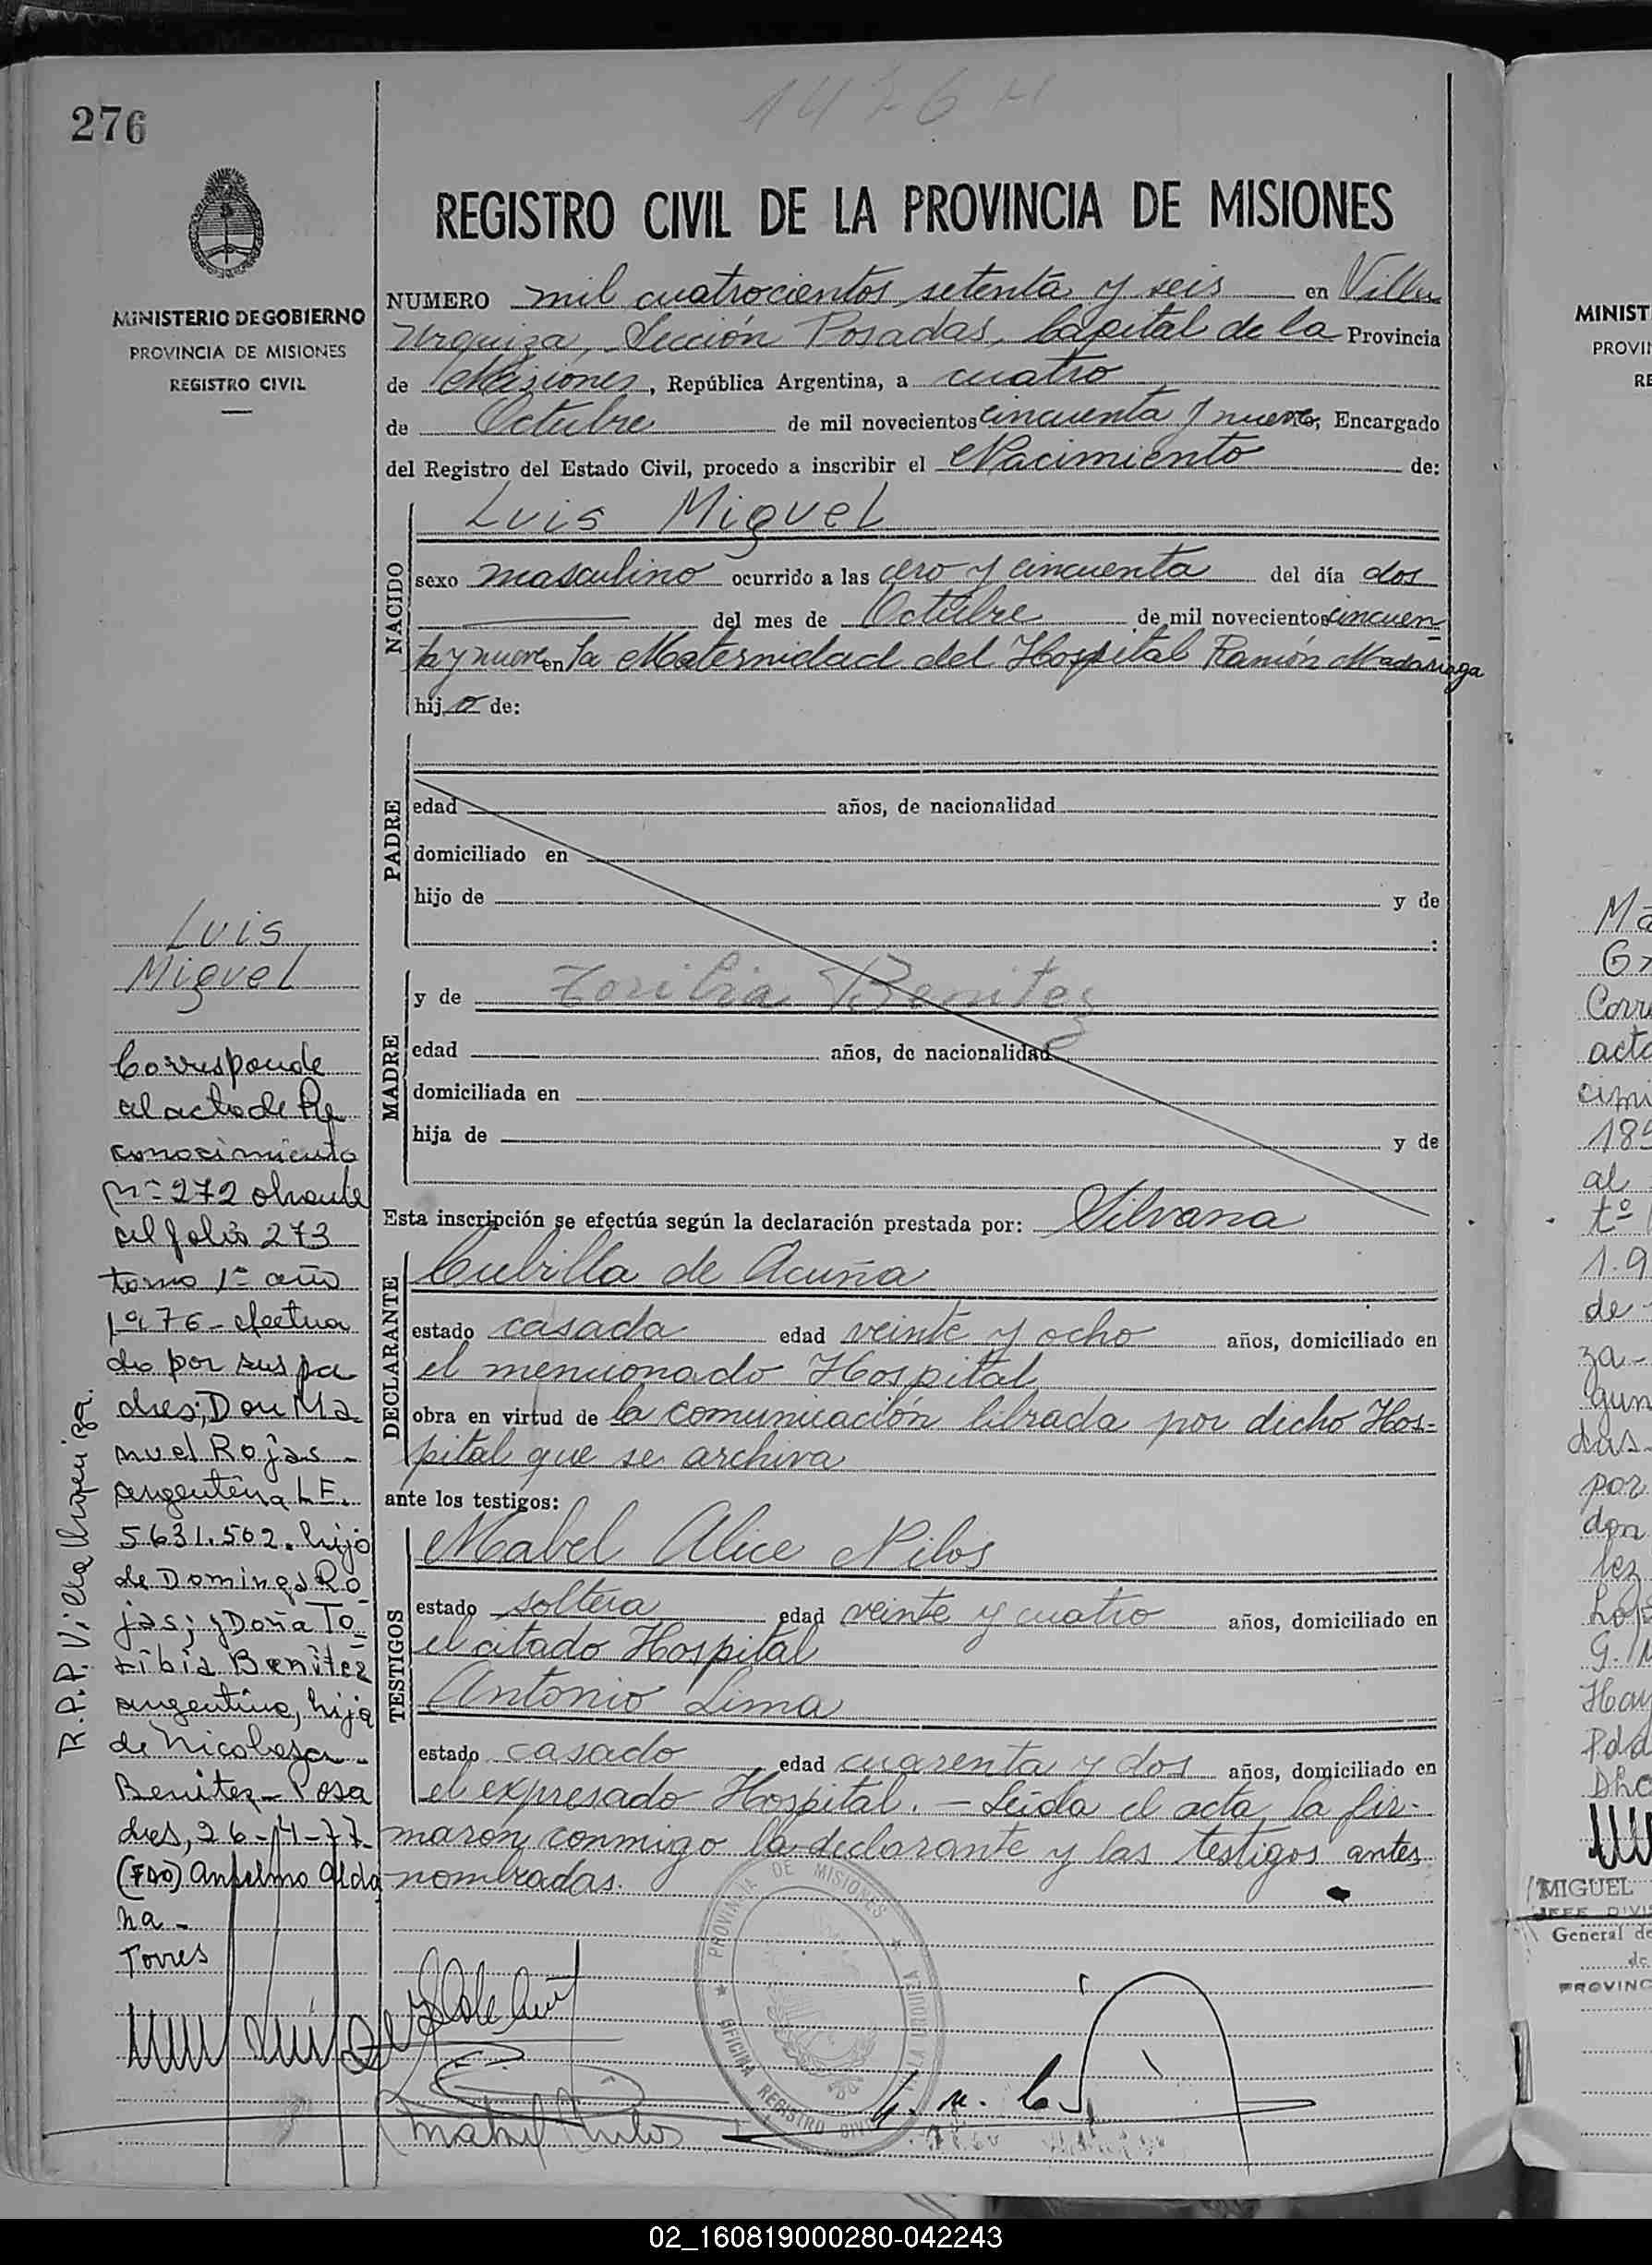 1476
276
REGISTRO CIVIL DE LA PROVINCIA DE MISIONES
MINISTERIO DE GOBIERNO
PROVINCIA DE MISIONES
REGISTRO CIVIL
NUMERO mil cuatrocientos setenta y seis en Villa
Urquiza, Sección Posadas, Capital de la Provincia
de Misiones, República Argentina, a cuatro
de Octubre de mil novecientos cincuenta y nueve, Encargado
del Registro del Estado Civil, procedo a inscribir el Nacimiento de:
NACIDO
Luis Miguel
sexo masculino ocurrido a las cero y cincuenta del día dos
del mes de Octubre de mil novecientos cincuen
ta y nueve en la Maternidad del Hospital Ramón Madariaga
hijo de:
PADRE
edad años, de nacionalidad
domiciliado en
hijo de y de
:
MADRE
y de Toribia Benitez
edad años, de nacionalidad
domiciliada en
hija de y de
Esta inscripción se efectúa según la declaración prestada por: Silvana
DECLARANTE
Cubilla de Acuña
estado casada edad veinte y ocho años, domiciliado en
el mencionado Hospital
obra en virtud de la comunicación librada por dicho Hos-
pital que se archiva
ante los testigos:
TESTIGOS
Mabel Alice Nilos
estado soltera edad veinte y cuatro años, domiciliado en
el citado Hospital
Antonio Lima
estado casado edad cuarenta y dos años, domiciliado en
el expresado Hospital. - Leída el acta, la fir-
maron conmigo la declarante y las testigos antes
nombradas.
Luis
Miguel
Corresponde
al acta de Re
conocimiento
Nº 272 obrante
al folio 273
tomo 1º año
1976 - efectua
do por sus pa
dres; Don Ma-
nuel Rojas -
argentino L.E.
5631.502. hijo
de Domingo Ro
jas; y Doña To-
ribia Benitez
argentina, hija
de Nicolasa -
Benitez - Posa
das, 26-4-77-
(FDO) Anselmo Alda
na -
Torres
R.P.P. Villa Urquiza.
PROVINCIA DE MISIONES
OFICINA REGISTRO CIVIL
VILLA URQUIZA
MINIST
PROVI
RE
Corr
acto
al
1.9
de
por
don
MIGUEL
General de
de
PROVINC
02_160819000280-042243